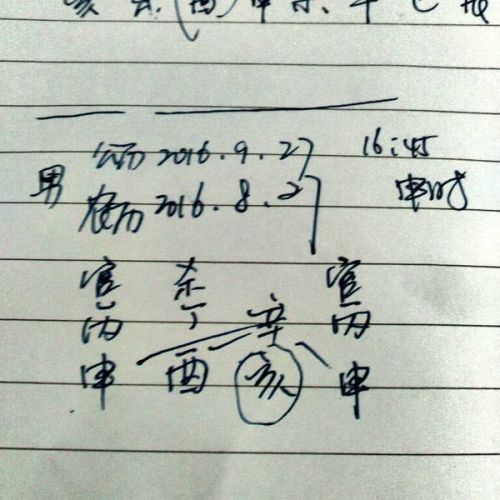 (酉)申
公历 2016.9.27 16:45
男 农历 2016.8.27 申时
官 杀 官
丙 丁 辛 丙
申 酉 亥 申